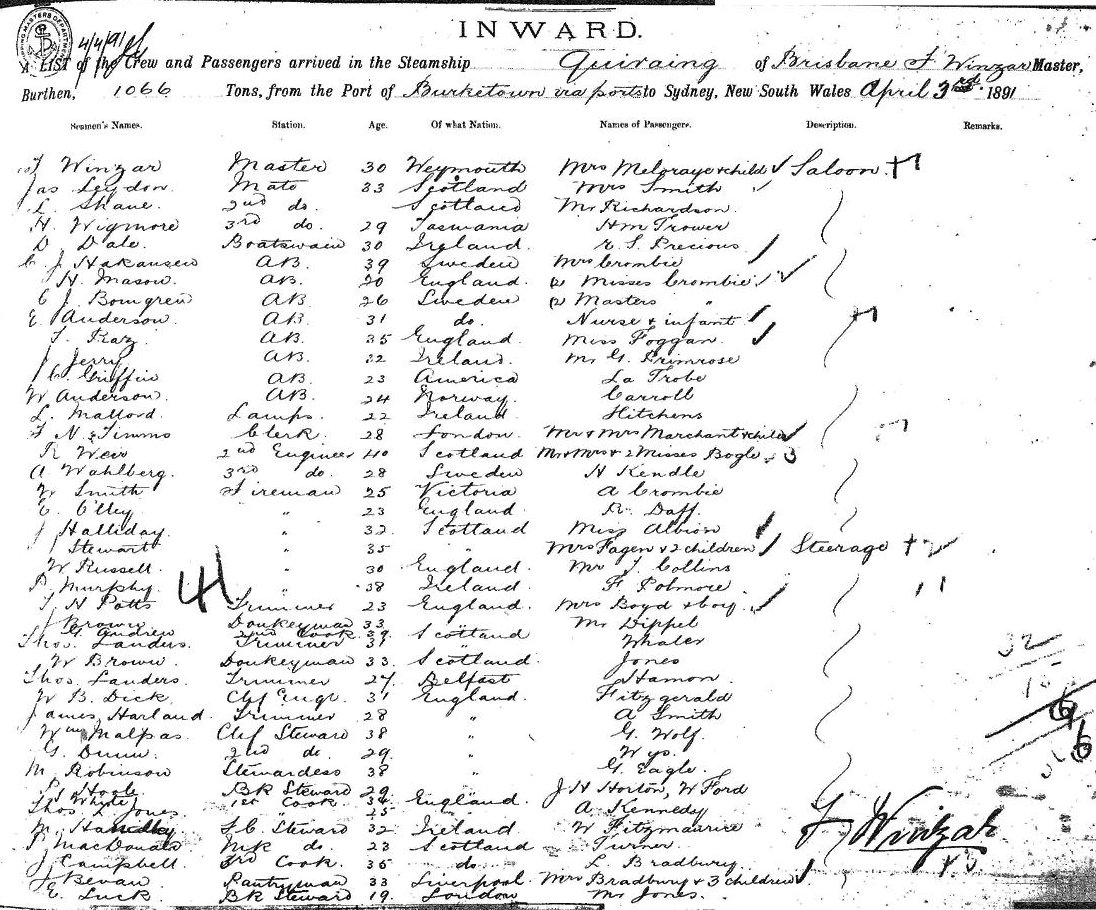 INWARD.
4/4/91
A LIST of the Crew and Passengers arrived in the Steamship Quiraing of Brisbane F Winzar Master,
Burthen, 1066 Tons, from the Port of Burketown via ports to Sydney, New South Wales April 3rd 1891
Seamen's Names. Station. Age. Of what Nation. Names of Passengers. Description. Remarks.
F Winzar Master 30 Weymouth Mrs & child Saloon
Jas Leydon Mate 33 Scotland Mrs Smith
L Shane 2nd do. Scotland Mr Richardson
H. Wigmore 3rd do. 29 Tasmania Hm Trower
D. Dale. Boatswain 30 Ireland E. S. Precious
C. J. Hakansen AB. 39 Sweden Mrs Crombie
H. Mason. AB. 20 England. 2 Misses Crombie
C J. Bomgren AB. 26 Sweden 2 Masters "
E. Anderson. AB. 31 do. Nurse & infant
AB. 35 England. Miss Foggan
J Jerry AB. 22 Ireland. Mr G. Primrose
C. Griffin AB. 23 America La Trobe
W Anderson. AB. 24 Norway. Carroll
L. Mallord. Lamps. 22 Ireland Hitchens
F. N. Timms Clerk. 28 London. Mr & Mrs Marchant & child
R Weir 2nd Engineer 40 Scotland Mr & Mrs & 2 Misses Bogle 3
A Wahlberg. 3rd do. 28 Sweden H Kendle
W Smith Fireman 25 Victoria A Crombie
E. " 23 England. R. Daff.
J Halliday. " 32 Scotland Miss Albion
J Stewart " 35 " Mrs Fagen & 2 children Steerage
W Russell. " 30 England. Mr J. Collins
P. Murphy. " 38 Ireland F. Polmore
T H Potts Trimmer 23 England. Mrs Boyd & boy.
J Brown Donkeyman 33 Mr Dippel
G. Andrew 2nd Cook. 39 Scotland
Thos. Landers. Trimmer 31 " Whaler
W Brown. Donkeyman 33. Scotland. Jones
Thos. Landers. Trimmer 27. Belfast Hamon.
W B. Dick. Chf Engr. 31 England. Fitzgerald
James Harland. Trimmer 28 " A Smith
Wm Malpas. Chf Steward 38 " G. Wolf.
G. Dunn. 2nd do. 29. "
M. Robinson Stewardess 38 " G. Eagle.
Bk Steward 29. J H Horton, W Ford
Whyte 1st Cook. 34 England.
Thos L Jones " 25 A. Kennedy
F.C. Steward 32 Ireland W Fitzmaurice
P MacDonald do. 23 Scotland Turner.
J Campbell 3rd Cook. 35 do. L Bradbury.
J Bevan Pantryman 33 Liverpool. Mrs Bradbury & 3 children
E. Luck Bk Steward 19. London Mr Jones.
41
32
F Winzar